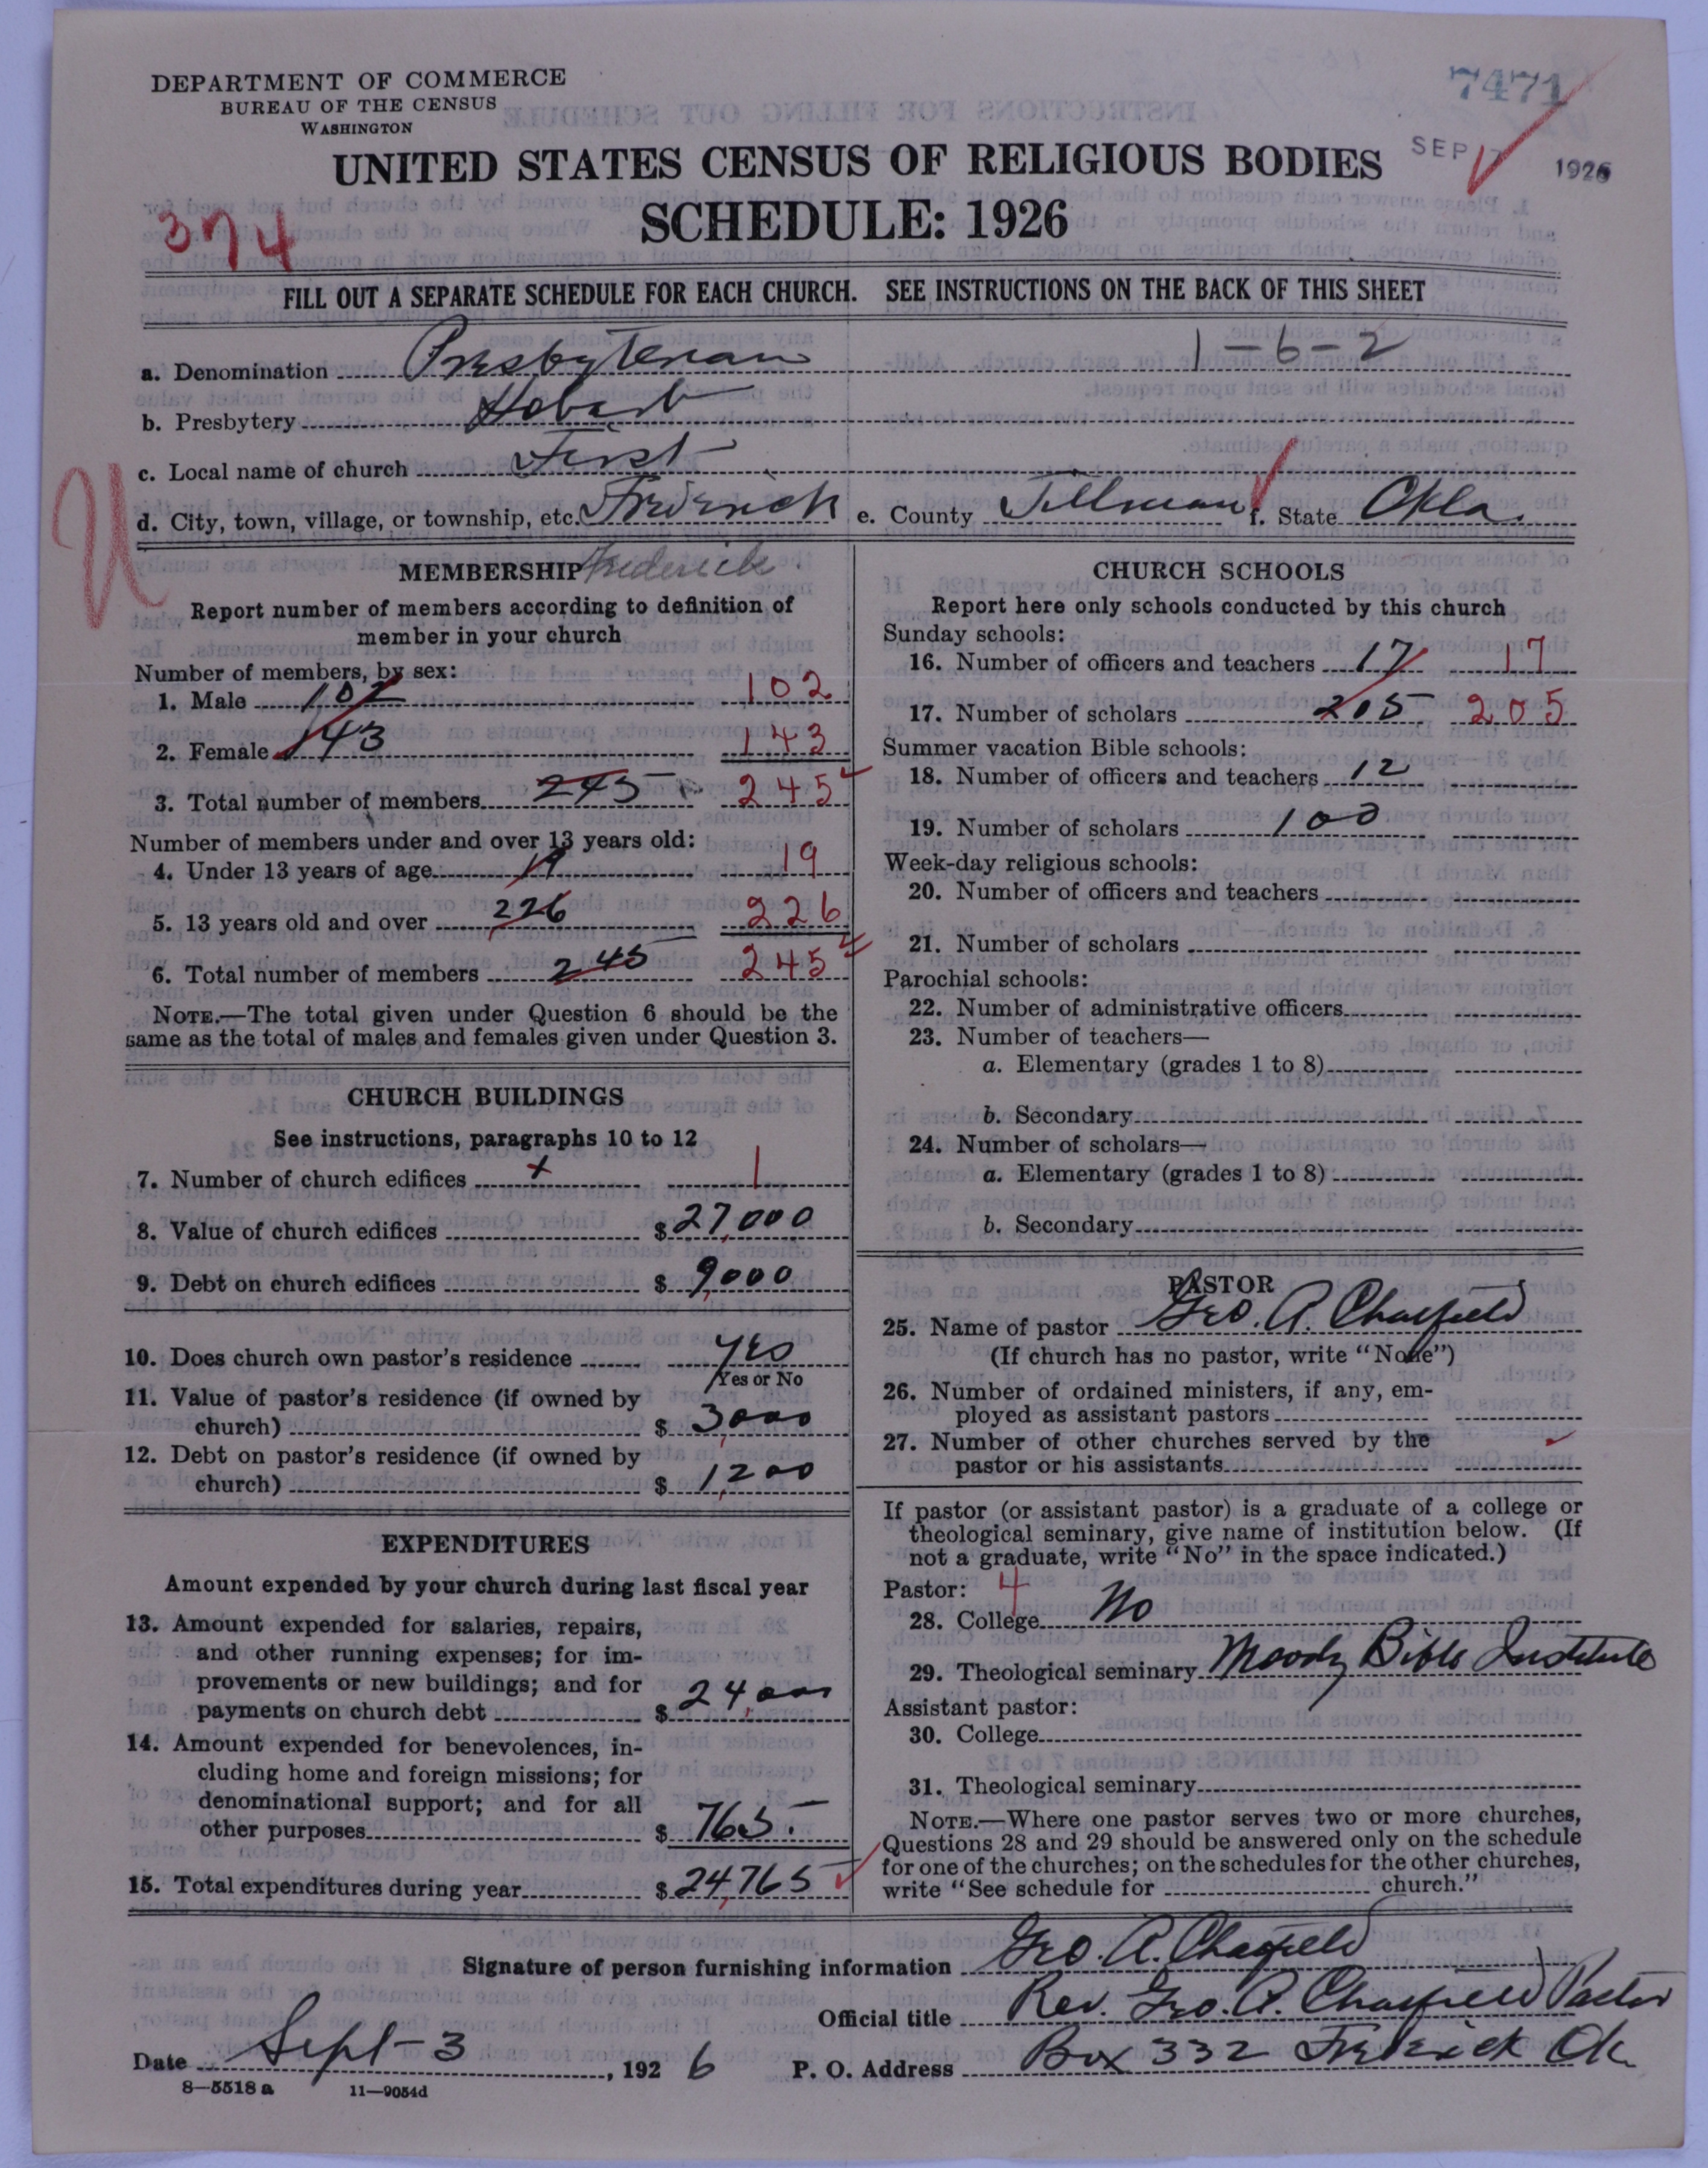 DEPARTMENT OF COMMERCE
BUREAU OF THE CENSUS
WASHINGTON
7471
SEP 7 1926
UNITED STATES CENSUS OF RELIGIOUS BODIES
374
SCHEDULE: 1926
FILL OUT A SEPARATE SCHEDULE FOR EACH CHURCH. SEE INSTRUCTIONS ON THE BACK OF THIS SHEET
a. Denomination Presbyterian 1-6-2
b. Presbytery Hobart
c. Local name of church First
U
d. City, town, village, or township, etc. Frederick e. County Tillman f. State Okla.
MEMBERSHIP Frederick
Report number of members according to definition of
member in your church
Number of members, by sex:
1. Male 102 102
2. Female 143 143
3. Total number of members 245 245
Number of members under and over 13 years old:
4. Under 13 years of age 19 19
5. 13 years old and over 226 226
6. Total number of members 245 245
NOTE.—The total given under Question 6 should be the
same as the total of males and females given under Question 3.
CHURCH BUILDINGS
See instructions, paragraphs 10 to 12
7. Number of church edifices x 1
8. Value of church edifices $27,000
9. Debt on church edifices $ 9,000
10. Does church own pastor's residence Yes
Yes or No
11. Value of pastor's residence (if owned by
church) $ 3,000
12. Debt on pastor's residence (if owned by
church) $ 1,200
EXPENDITURES
Amount expended by your church during last fiscal year
13. Amount expended for salaries, repairs,
and other running expenses; for im-
provements or new buildings; and for
payments on church debt $ 24,000
14. Amount expended for benevolences, in-
cluding home and foreign missions; for
denominational support; and for all
other purposes $ 765.—
15. Total expenditures during year $ 24,765
CHURCH SCHOOLS
Report here only schools conducted by this church
Sunday schools:
16. Number of officers and teachers 17 17
17. Number of scholars 205 205
Summer vacation Bible schools:
18. Number of officers and teachers 12
19. Number of scholars 100
Week-day religious schools:
20. Number of officers and teachers
21. Number of scholars
Parochial schools:
22. Number of administrative officers
23. Number of teachers—
a. Elementary (grades 1 to 8)
b. Secondary
24. Number of scholars—
a. Elementary (grades 1 to 8)
b. Secondary
PASTOR
25. Name of pastor Geo. A. Chatfield
(If church has no pastor, write "None")
26. Number of ordained ministers, if any, em-
ployed as assistant pastors
27. Number of other churches served by the
pastor or his assistants
If pastor (or assistant pastor) is a graduate of a college or
theological seminary, give name of institution below. (If
not a graduate, write "No" in the space indicated.)
Pastor: 4
28. College No
29. Theological seminary Moody Bible Institute
Assistant pastor:
30. College
31. Theological seminary
NOTE.—Where one pastor serves two or more churches,
Questions 28 and 29 should be answered only on the schedule
for one of the churches; on the schedules for the other churches,
write "See schedule for church."
Signature of person furnishing information Geo. A. Chatfield
Official title Rev. Geo. A. Chatfield Pastor
Date Sept-3, 1926 P. O. Address Box 332 Frederick Ok
8—5518 a 11—9054d